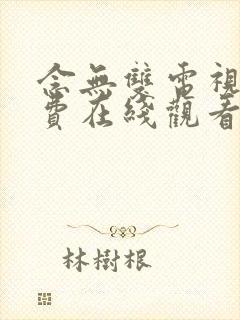 念無雙電視
費在綫觀看
林樹根